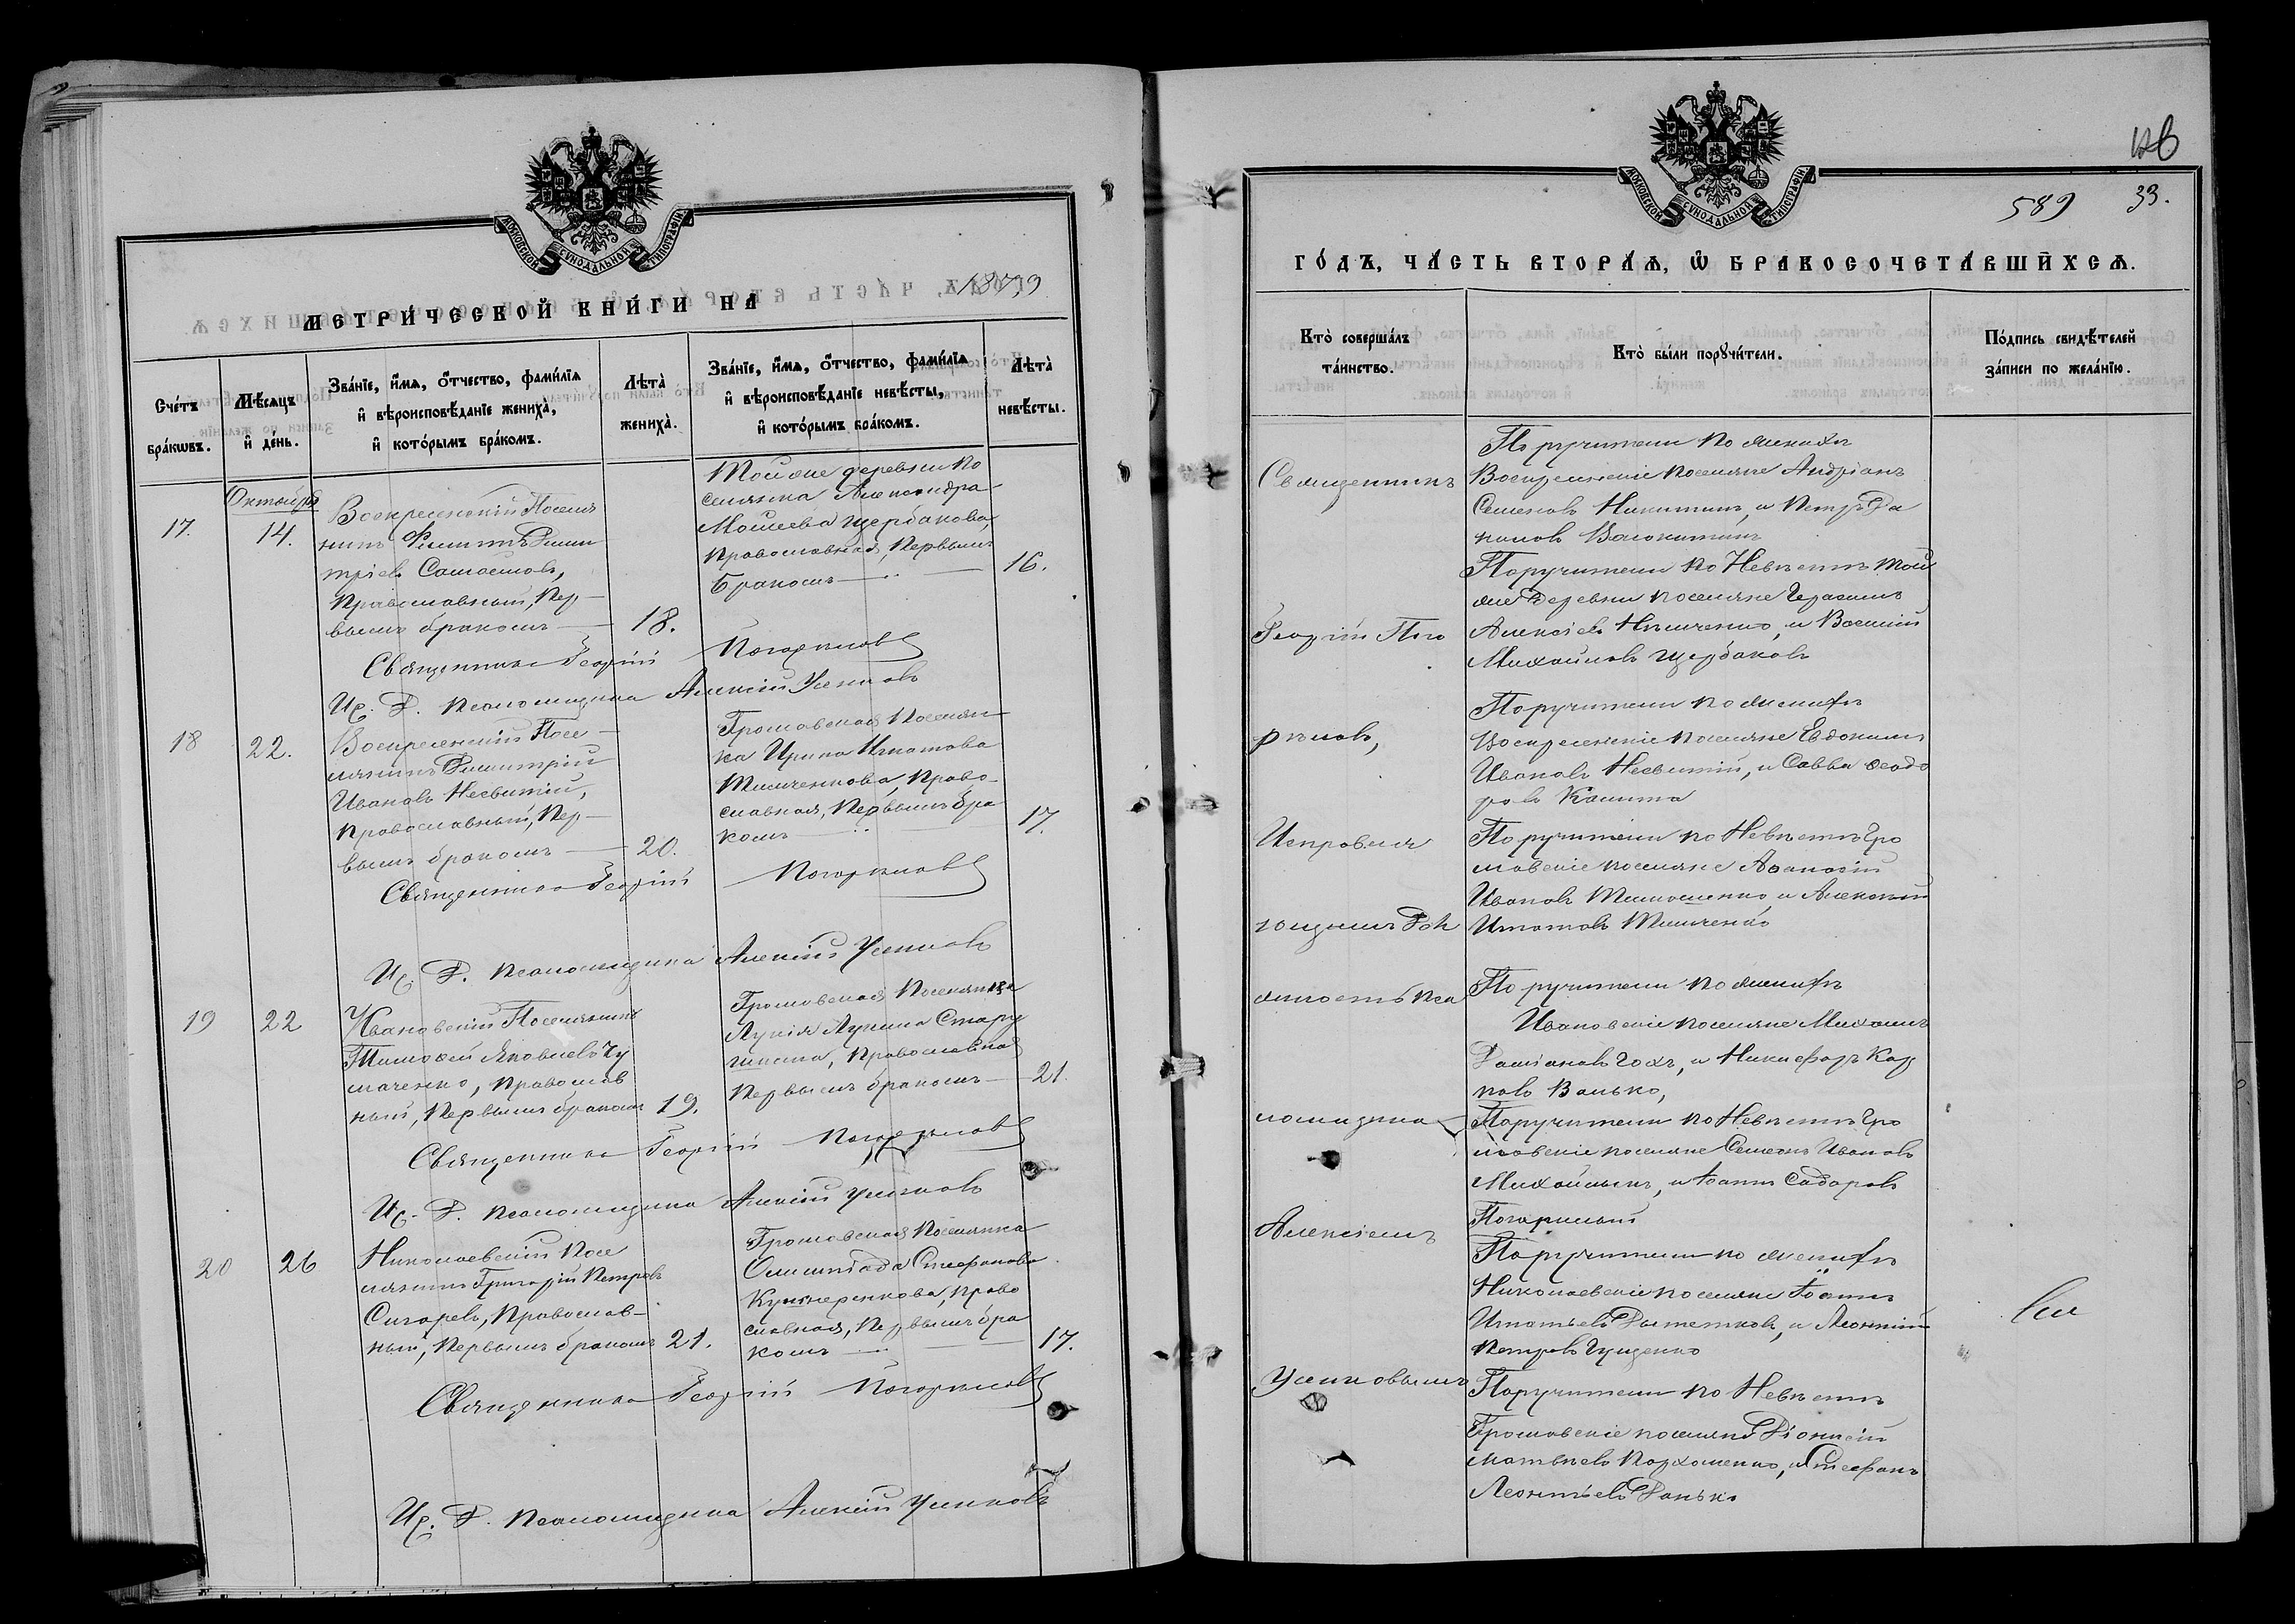 МОСКОВСКОЙ СѴНОДАЛЬНОЙ ТИПОГРАФІИ
МЕТРИ́ЧЕСКОЙ КНИ́ГИ НА 1879
Сче́тъ бра́кѡвъ.
Мѣ́сяцъ и҆ де́нь.
Зва́нїе, и҆́мѧ, ѻ҆́тчество, фами́лїѧ
и҆ вѣроисповѣ́данїе жениха̀,
и҆ кото́рымъ бра́комъ.
Лѣ́та̀ жениха̀.
Зва́нїе, и҆́мѧ, ѻ҆́тчество, фами́лїѧ
и҆ вѣроисповѣ́данїе невѣ́сты,
и҆ кото́рымъ бра́комъ.
Лѣ́та̀ невѣ́сты.
Октября
17.
14.
Воскресенскій Поселя
нинъ Филиппъ Дими
тріевъ Самойловъ,
Православный, Пер-
вымъ бракомъ
18.
Той же деревни по
селянка Александра
Моисеева Щербакова,
Православная, Первымъ
бракомъ
16.
Священникъ Георгій Погорѣловъ
И. Д. Псаломщика Алексій Усиковъ
18
22.
Воскресенскій Посе-
лянинъ Димитрій
Ивановъ Несвитій,
Православный, Пер-
вымъ бракомъ
20.
Громовская Поселян
ка Ирина Игнатова
Тимченкова, Право-
славная, Первымъ бра
комъ
17.
Священникъ Георгій Погорѣловъ
И. Д. Псаломщика Алексій Усиковъ
19
22
Ивановскій Поселянинъ
Тимофей Яковлевъ Чу
маченко, Православ
ный, Первымъ бракомъ
19.
Громовская Поселянка
Лукія Лукина Стару
шкина, Православная
Первымъ бракомъ
21.
Священникъ Георгій Погорѣловъ
И. Д. Псаломщика Алексій Усиковъ
20
26
Николаевскій Посе
лянинъ Григорій Петровъ
Сигаревъ, Православ-
ный, Первымъ бракомъ
21.
Громовская Поселянка
Олимпіада Стефанова
Кушнеренкова, Право
славная, Первымъ бра
комъ
17.
Священникъ Георгій Погорѣловъ
И. Д. Псаломщика Алексій Усиковъ
МОСКОВСКОЙ СѴНОДАЛЬНОЙ ТИПОГРАФІИ
589
33.
ГО́ДЪ, ЧА́СТЬ ВТОРА́Ѧ, Ѡ҆ БРАКОСОЧЕТА́ВШИХСѦ.
Кто̀ соверша́лъ та́инство.
Кто̀ бы́ли порꙋчи́тели.
По́дпись свидѣ́телей
за́писи по жела́нїю.
Священникъ
Георгій Пого
рѣловъ,
Исправля
ющимъ Дол
жность Пса
ломщика
Алексіемъ
Усиковымъ
Поручители по женихѣ
Воскресенскіе поселяне Андріанъ
Семеновъ Никитинъ, и Петръ Да
ниловъ Волокитинъ
Поручители по Невѣстѣ той
же Деревни поселяне Герасимъ
Алексіевъ Ильченко, и Василій
Михайловъ Щербаковъ
Поручители по женихѣ
Воскресенскіе поселяне Евдокимъ
Ивановъ Несвитій, и Савва Ѳеодо
ровъ Калита
Поручители по Невѣстѣ Гро
мовскіе поселяне Аѳанасій
Ивановъ Тимошенко, и Алексѣй
Игнатовъ Тимченко
Поручители по женихѣ
Ивановскіе поселяне Михаилъ
Даміановъ Гохъ, и Никифоръ Кар
повъ Волько,
Поручители по Невѣстѣ Гро
мовскіе поселяне Семеонъ Ивановъ
Михайлыкъ, и Іоаннъ Сидоровъ
Погорѣлый
Поручители по женихѣ
Николаевскіе поселяне Іоаннъ
Игнатьевъ, и Леонтій
Петровъ Гуценко
Поручители по Невѣстѣ
Громовскіе поселяне Діонисій
Матвѣевъ Пархоменко, и Стефанъ
Леонтьевъ Данько